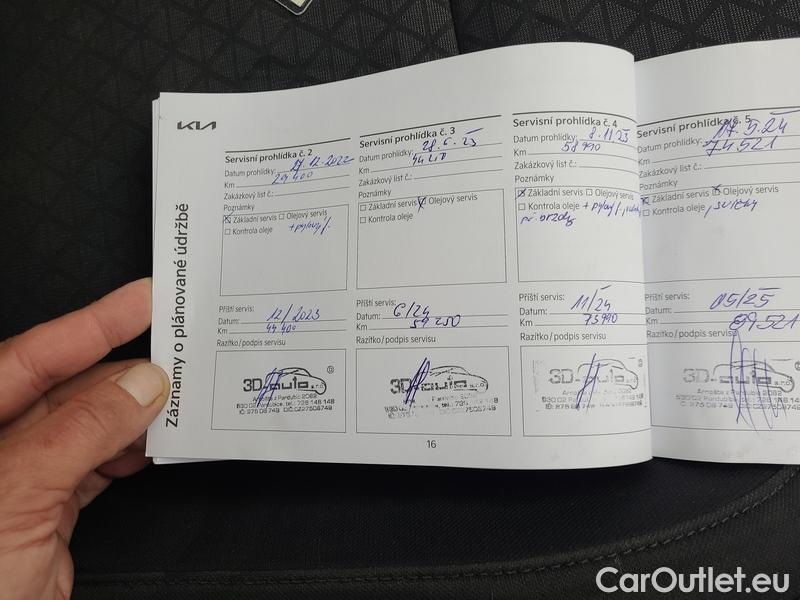 KIA
Záznamy o plánované údržbě
Servisní prohlídka č. 2
Datum prohlídky: 17.12.2022
Km 29 400
Zakázkový list č.:
Poznámky
Základní servis Olejový servis
Kontrola oleje + pylový f.
Příští servis:
Datum: 12/2023
Km 44 400
Razítko/podpis servisu
3D-auto s.r.o.
Arnošta z Pardubic 2082
530 02 Pardubice, tel.: 728 148 148
IČ: 275 08 749 DIČ: CZ27508749
Servisní prohlídka č. 3
Datum prohlídky: 28.6.23
Km 44 210
Zakázkový list č.:
Poznámky
Základní servis Olejový servis
Kontrola oleje
Příští servis:
Datum: 6/24
Km 59 250
Razítko/podpis servisu
3D-auto s.r.o.
16
Servisní prohlídka č. 4
Datum prohlídky: 8.11.23
Km 58 990
Zakázkový list č.:
Poznámky
Základní servis Olejový servis
Kontrola oleje + pylový f.,
brzdy
Příští servis:
Datum: 11/24
Km 73 990
Razítko/podpis servisu
3D-auto s.r.o.
Servisní prohlídka č. 5
Datum prohlídky: 17.5.24
Km 74 521
Zakázkový list č.:
Poznámky
Základní servis Olejový servis
Kontrola oleje , svíčky
Příští servis:
Datum: 05/25
Km 89 521
Razítko/podpis servisu
3D-auto s.r.o.
CarOutlet.eu